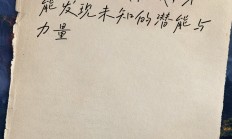 能发现未知的潜能与
力量